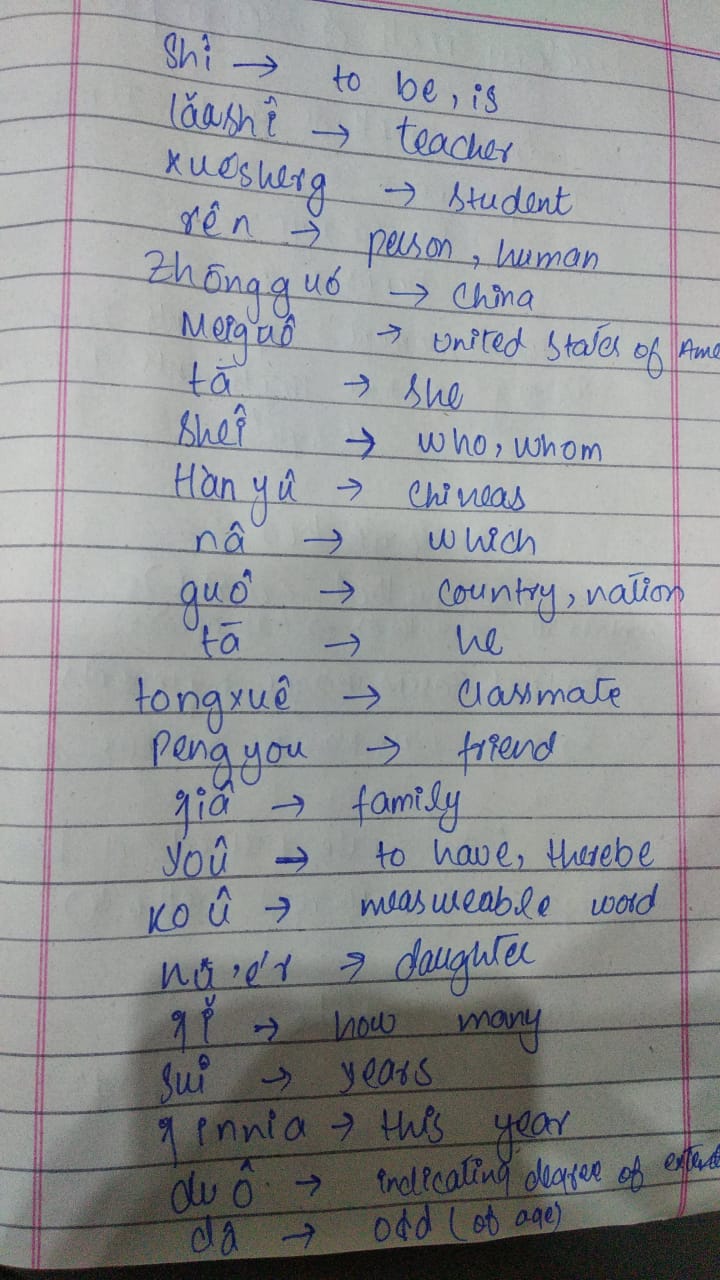 Shî → to be, is
lǎashî → teacher
xuésherg → student
rên → person, human
Zhōngguó → China
Meiguô → United States of Ame
tā → she
Sheî → who, whom
Hàn yû → Chineas
nâ → which
guô → country, nation
tā → he
tongxuê → classmate
Peng you → friend
giâ → family
Yoû → to have, therebe
Ko û → measureable word
nü̆'ér → daughter
gǐ → how many
Suî → years
ginnia → this year
du ô → indicating degree of extend
dâ → odd (of age)